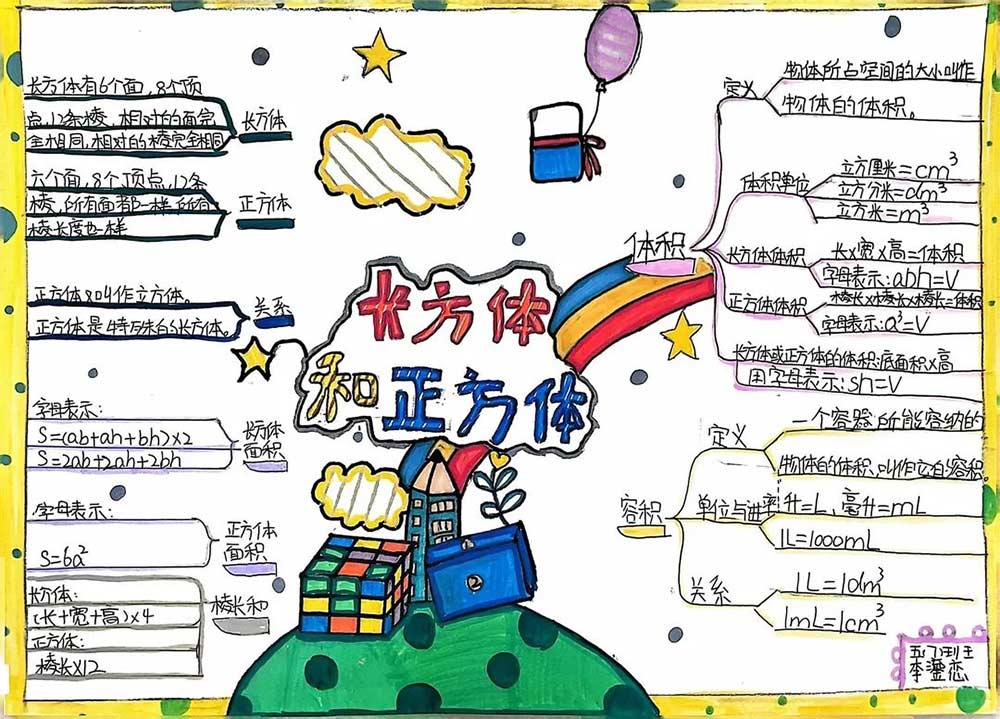 长方体
和正方体
长方体有6个面,8个顶
点,12条棱,相对的面完
全相同,相对的棱完全相同
长方体
六个面,8个顶点,12条
棱,所有面都一样,所有
棱长度也一样
正方体
正方体又叫作立方体。
正方体是特殊的长方体。
关系
字母表示:
S=(ab+ah+bh)×2
S=2ab+2ah+2bh
长方体
面积
字母表示:
S=6a²
正方体
面积
长方体:
(长+宽+高)×4
正方体:
棱长×12
棱长和
体积
定义
物体所占空间的大小叫作
物体的体积。
体积单位
立方厘米=cm³
立方分米=dm³
立方米=m³
长方体体积
长×宽×高=体积
字母表示:abh=V
正方体体积
棱长×棱长×棱长=体积
字母表示:a³=V
长方体或正方体的体积:底面积×高
用字母表示:sh=V
容积
定义
一个容器所能容纳的
物体的体积,叫作它的容积。
单位与进率
升=L、毫升=mL
1L=1000mL
关系
1L=1dm³
1mL=1cm³
2